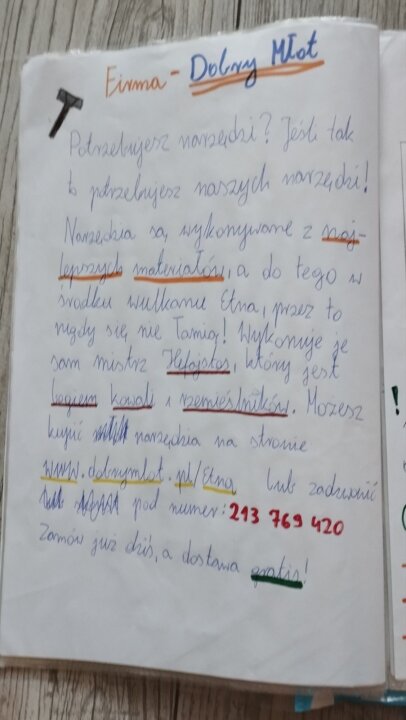 Firma - Dobry Młot
Potrzebujesz narzędzi? Jeśli tak
to potrzebujesz naszych narzędzi!
Narzędzia są wykonywane z naj-
lepszych materiałów, a do tego w
środku wulkanu Etna, przez to
nigdy się nie łamią! Wykonuje je
sam mistrz Hefajstos, który jest
bogiem kowali i rzemieślników. Możesz
kupić narzędzia na stronie
www.dobrymlot.pl/Etna lub zadzwonić
pod numer: 213 769 420
Zamów już dziś, a dostawa gratis!